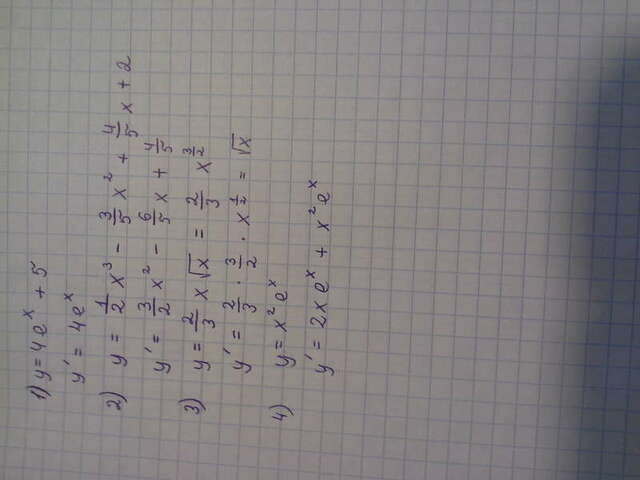 1) y = 4e^x + 5
y' = 4e^x
2) y = 1/2 x^3 - 3/5 x^2 + 4/5 x + 2
y' = 3/2 x^2 - 6/5 x + 4/5
3) y = 2/3 x √x = 2/3 x^(3/2)
y' = 2/3 · 3/2 · x^(1/2) = √x
4) y = x^2 e^x
y' = 2x e^x + x^2 e^x